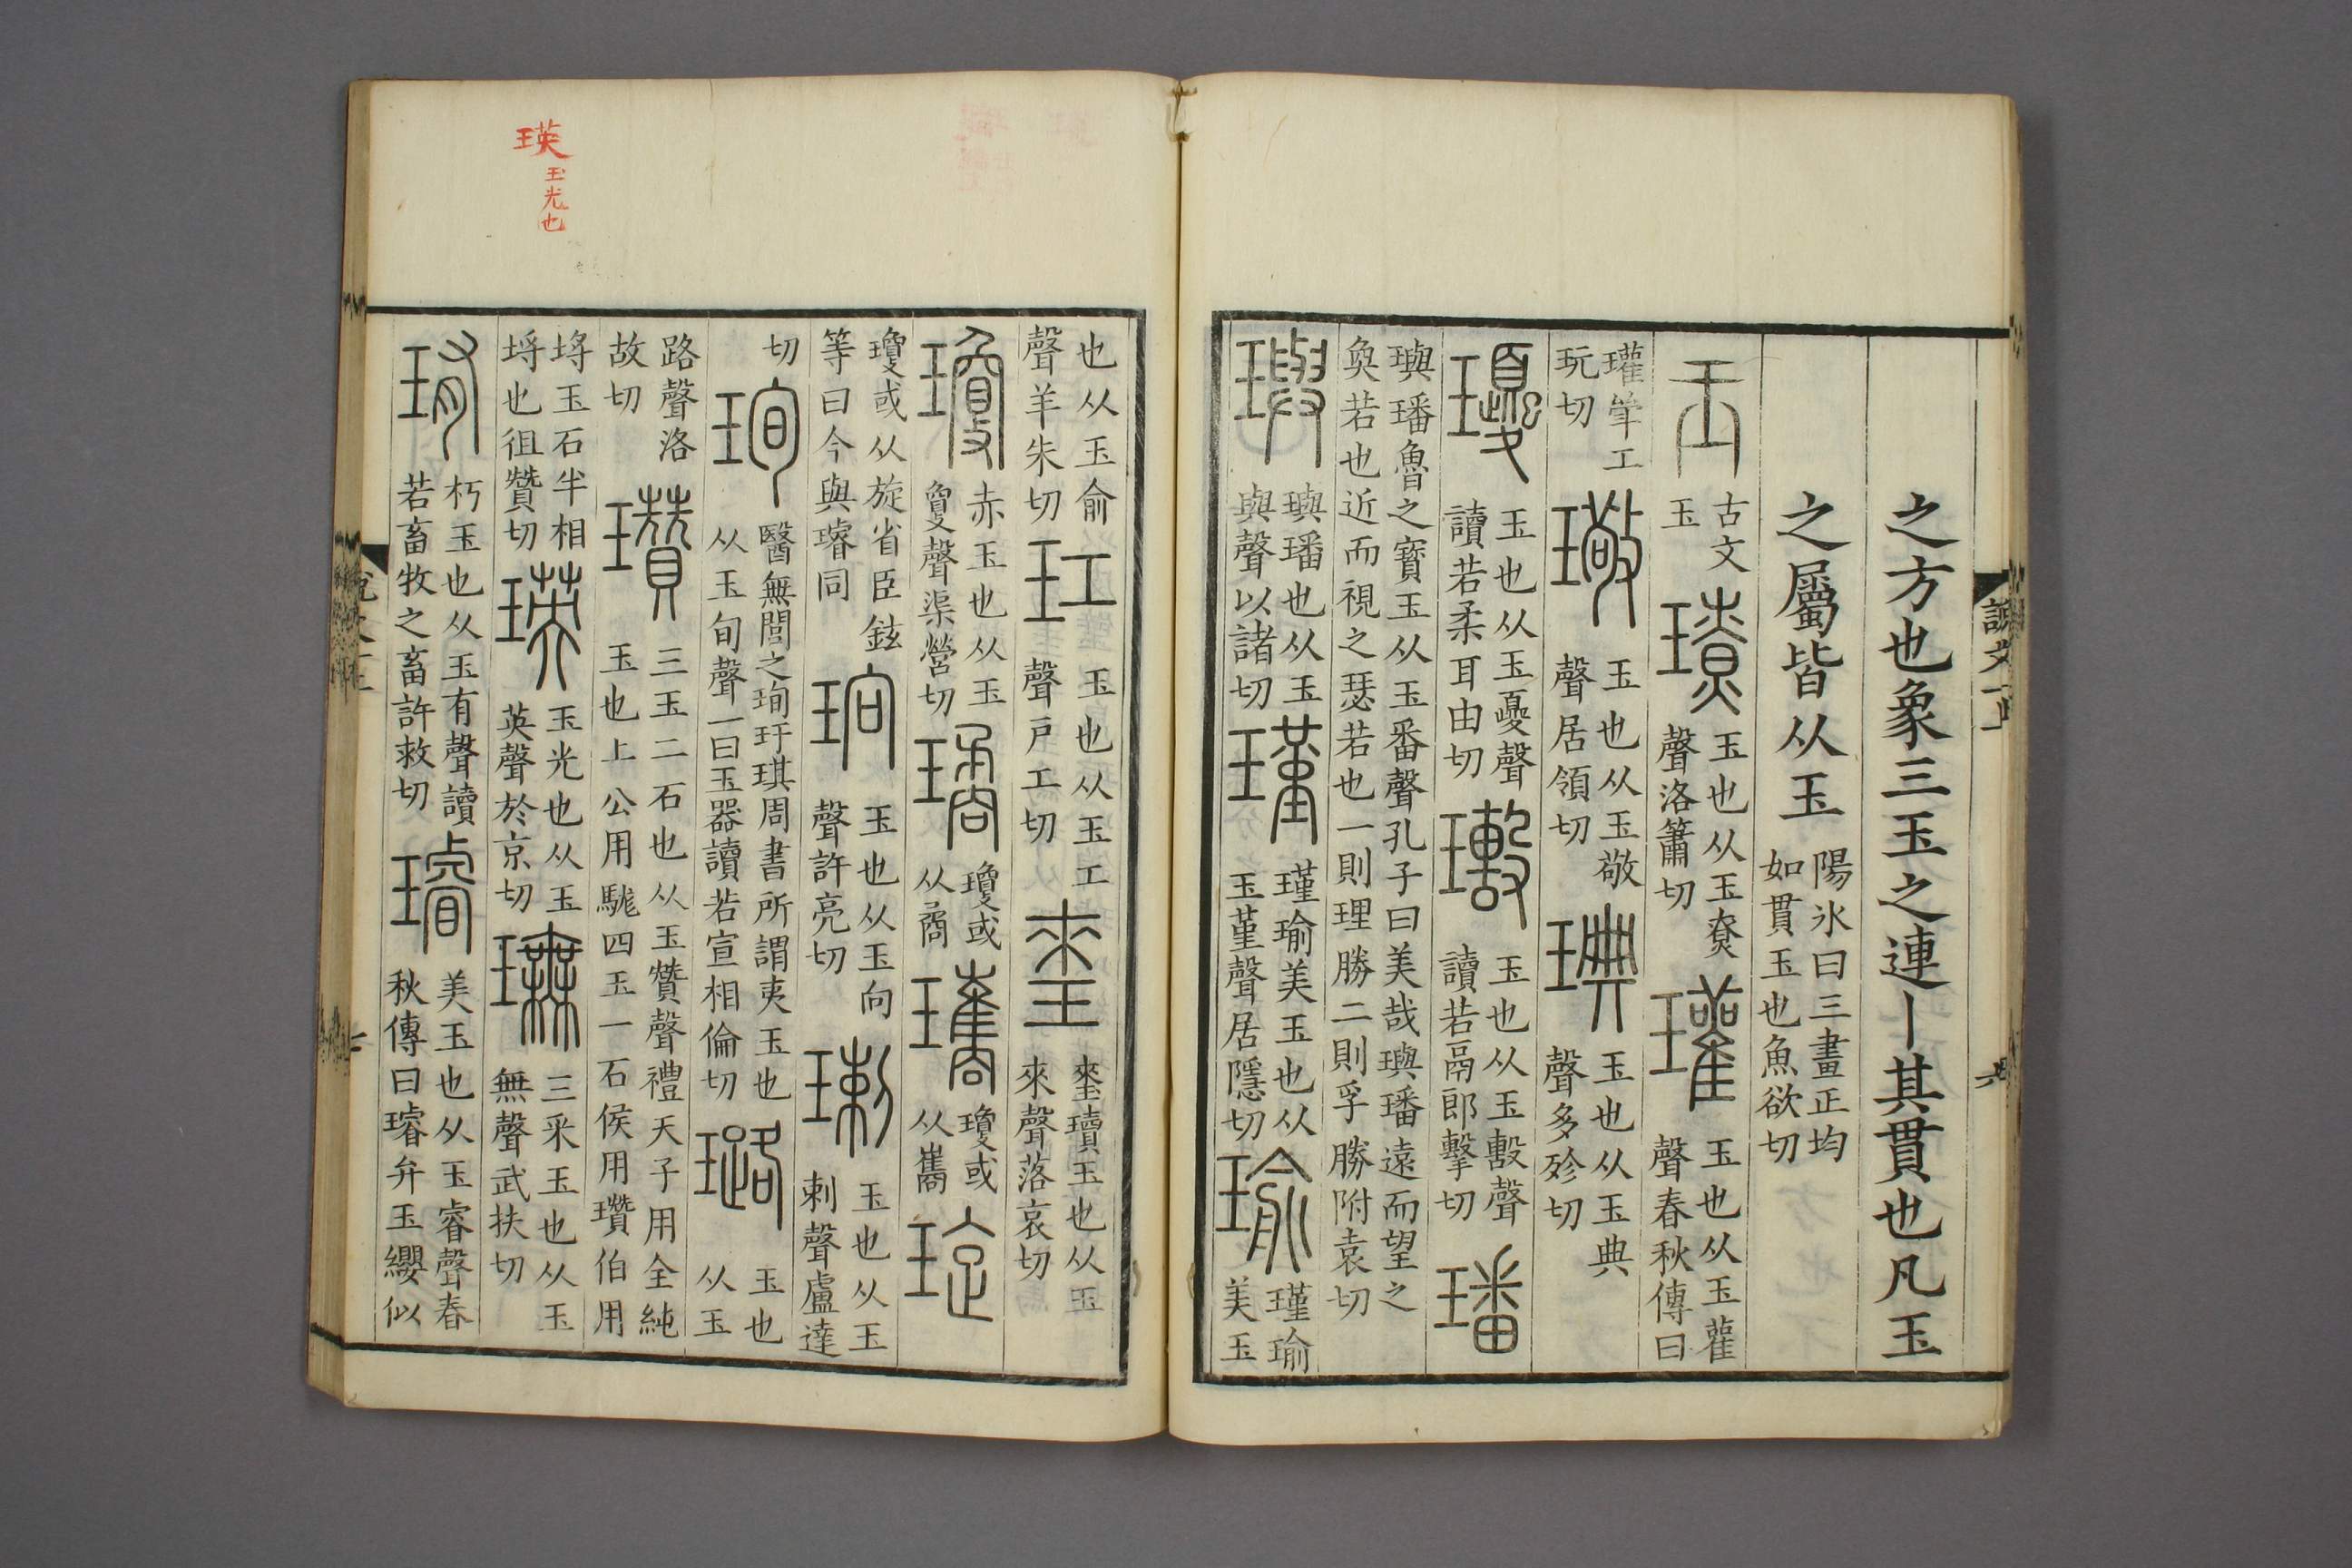 說文一上
之方也象三玉之連丨其貫也凡玉
之屬皆从玉陽冰曰三畫正均如貫玉也魚欲切
𤣪古文玉璙玉也从玉尞聲洛簫切瓘玉也从玉雚聲春秋傳曰
瓘斝工玩切璥玉也从玉敬聲居領切琠玉也从玉典聲多殄切
瓇玉也从玉夒聲讀若柔耳由切㼁玉也从玉毄聲讀若鬲郎擊切璠
璵璠魯之寶玉从玉番聲孔子曰美哉璵璠遠而望之奐若也近而視之瑟若也一則理勝二則孚勝附袁切
璵璵璠也从玉與聲以諸切瑾瑾瑜美玉也从玉堇聲居隱切瑜瑾瑜美玉
也从玉俞聲羊朱切玒玉也从玉工聲戶工切琜琜瓄玉也从玉來聲落哀切
瓊赤玉也从玉敻聲渠營切璚瓊或从矞瓗瓊或从巂琁
瓊或从旋省臣鉉等曰今與璿同珦玉也从玉向聲許亮切瓎玉也从玉剌聲盧達
切珣醫無閭之珣玗琪周書所謂夷玉也从玉旬聲一曰玉器讀若宣相倫切璐玉也从玉
路聲洛故切瓚三玉二石也从玉贊聲禮天子用全純玉也上公用駹四玉一石侯用瓚伯用
埒玉石半相埒也徂贊切瑛玉光也从玉英聲於京切璑三采玉也从玉無聲武扶切
珛朽玉也从玉有聲讀若畜牧之畜許救切璿美玉也从玉睿聲春秋傳曰璿弁玉纓似
瑛玉光也